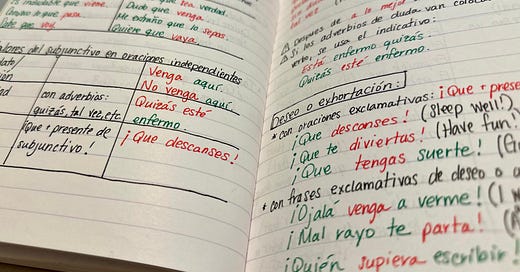 Es indudable que viene.
Acepto lo que pasa.
Sabe que voy.
Dudo que sea verdad.
Dudo que venga.
Me extraña que lo sepas.
Quiere que vaya.
alores del subjunctivo en oraciones independientes
dato/
ión
Venga aquí.
No venga aquí.
dad
con adverbios:
quizás, tal vez, etc.
Quizás esté
enfermo.
Que + presente de
subjunctivo!
¡Que descanses!
⚠ Después de a lo mejor
⚠ Si los adverbios de duda van coloca
verbo, se usa el indicativo:
Está enfermo quizás.
Quizás esté enfermo.
Deseo o exhortación:
* con oraciones exclamativas: ¡Que + prese
¡Que descanses! (Sleep well!)
¡Que te diviertas! (Have fun!)
¡Que tengas suerte! (G
* con frases exclamativas de deseo o a
¡Ojalá venga a verme! (I w
¡Mal rayo te parta!
¡Quién supiera escribir!